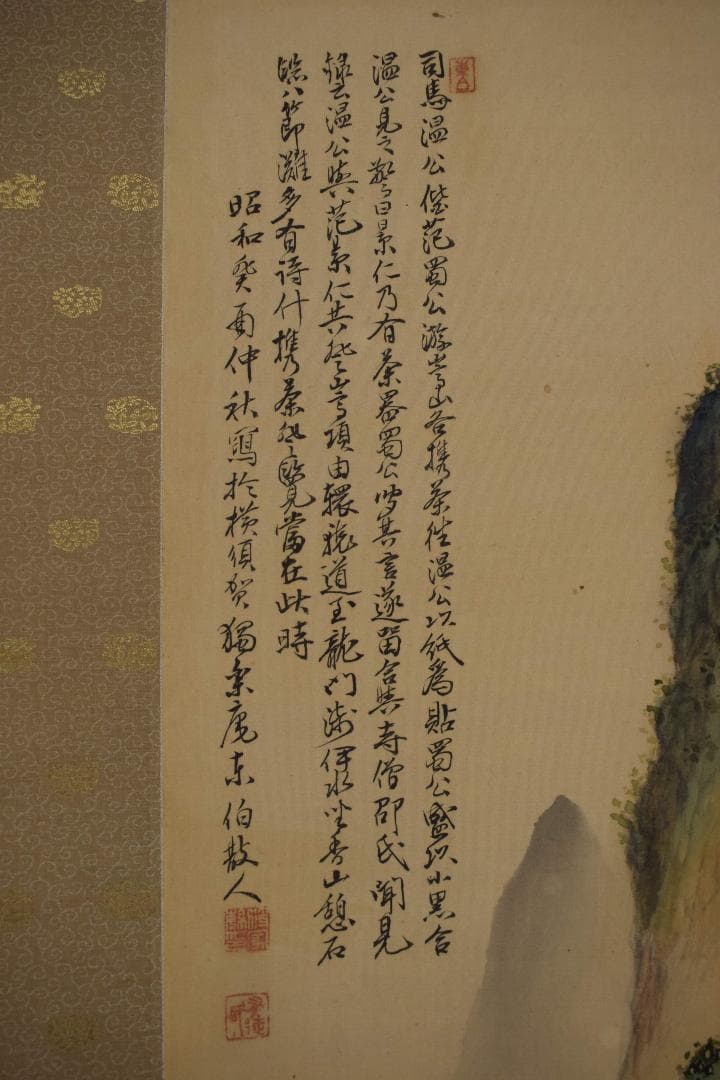 司馬温公偕范蜀公游嵩山各携茶往温公以紙為貼蜀公盛以小黒合
温公見之驚曰景仁乃有茶器蜀公聞其言遂留合與寺僧邵氏聞見
録云温公與范景仁共登嵩頂由轘轅道至龍門渉伊水坐香山憩石
臨八節灘多有詩什携茶登覧當在此時
昭和癸酉仲秋寫於横須賀獨樂庵東伯散人